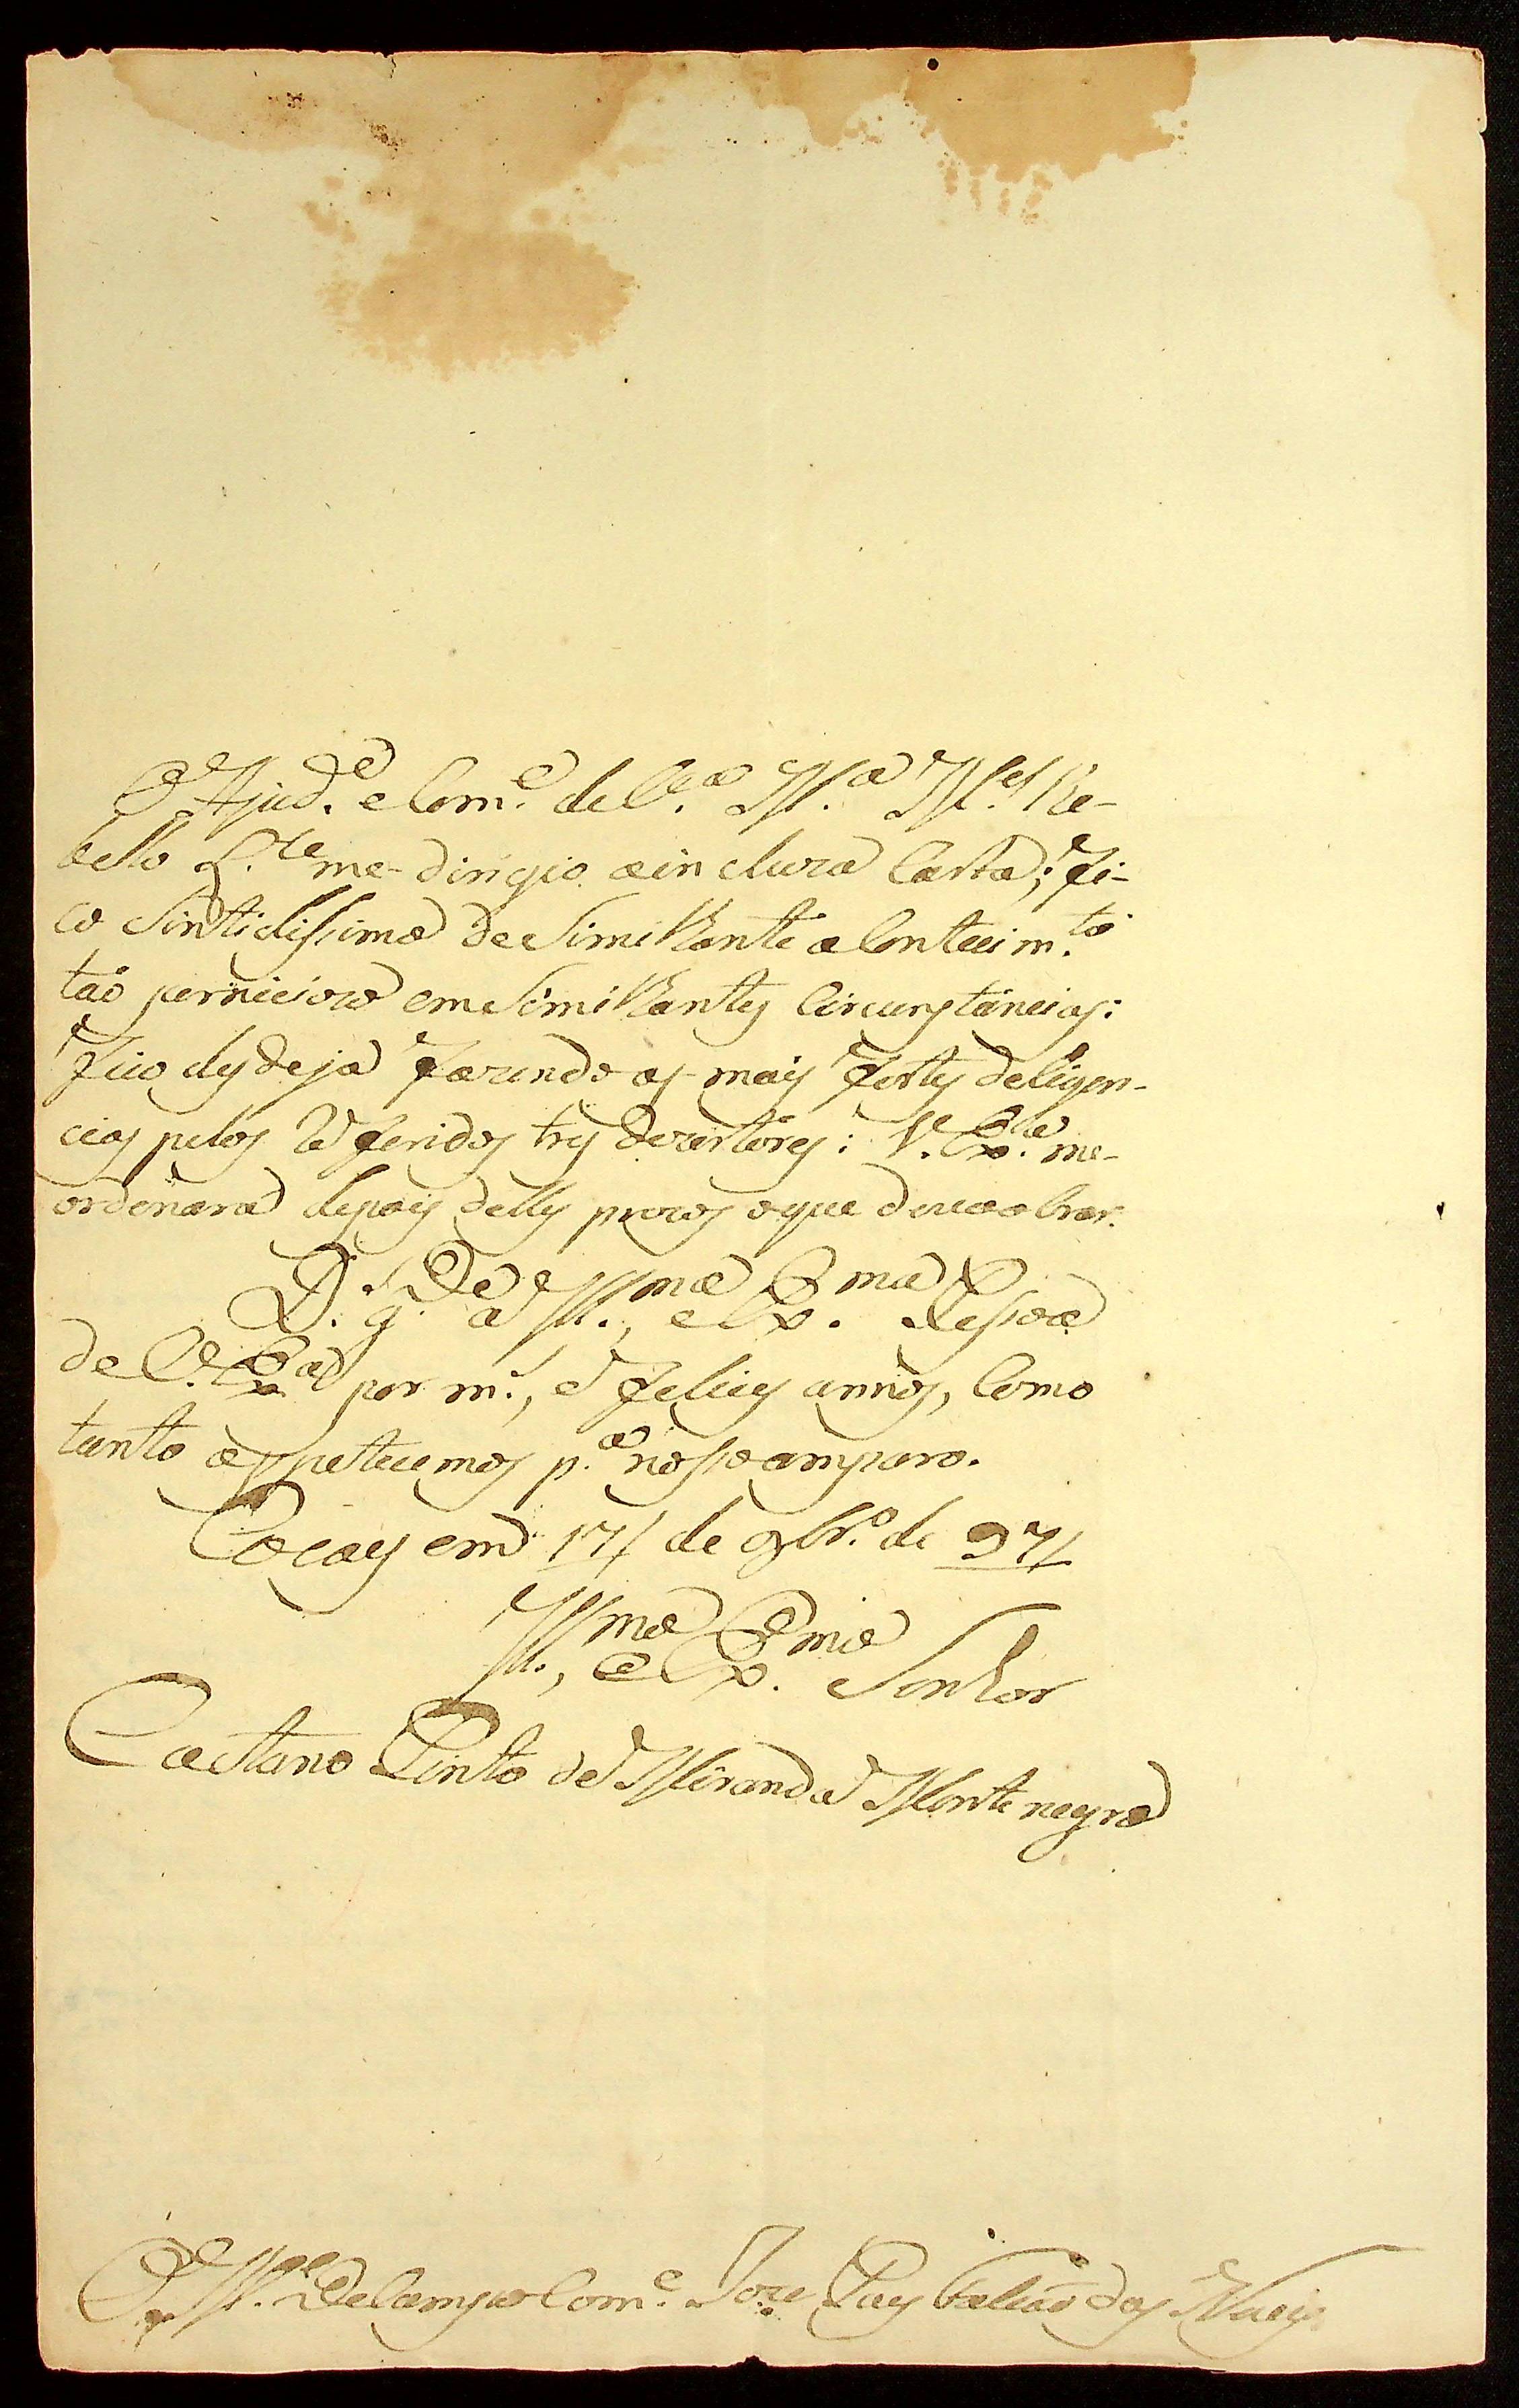 O Ajud.e e Com.e de V.a M.a M.el Re-
bello L.te me dirigio a incluza Carta; Fi-
co Sintidissimo de Similhante a Contecim.to
taõ pernicioso em Similhantes Circunstáncias:
Fico desde já Fazendo as mais Fortes deligen-
cias pelos referidos tres dezertores: V. Ex.a me
ordenará depois delles prezos o que devo obrar.
D.s g.de a Ill.ma, e Ex.ma Pessoa
de V. Ex.a por m.s, e Felices annos, Como
tanto appetecemos p.a nosso amparo.
Cocaes em 17/ de 9br.o de 97/
Ill.mo, e Ex.mo Senhor
Caetano Pinto de Miranda Monte negro
O M.e de Campo Com.e Joze Paes Falcaõ das Neves